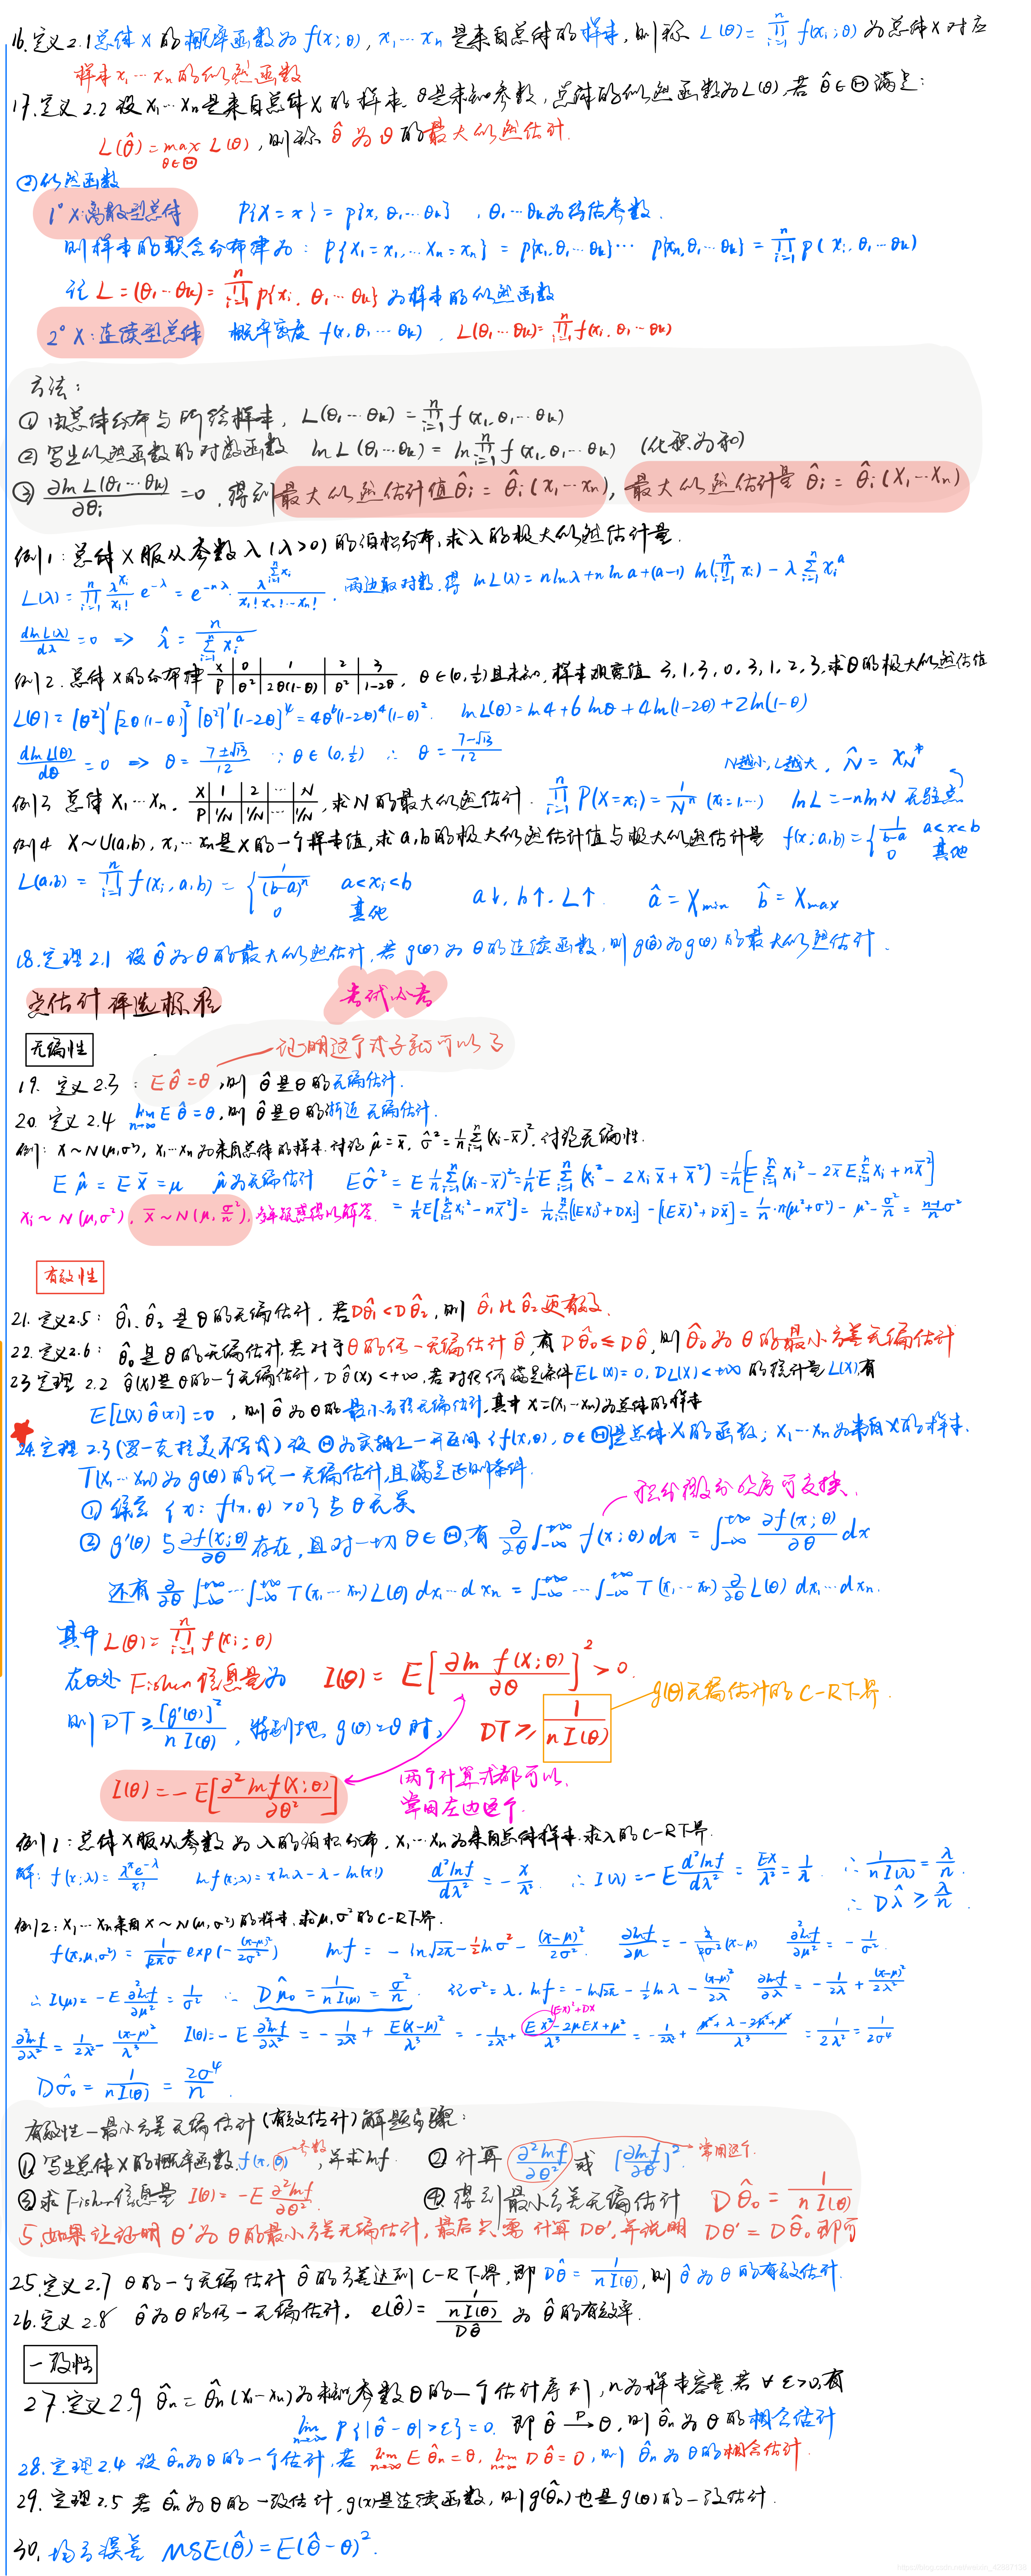 16.定义2.1总体X的概率函数为f(x;θ), x₁…xₙ是来自总体的样本,则称 L(θ)=∏ᵢ₌₁ⁿ f(xᵢ;θ)为总体X对应
样本x₁…xₙ的似然函数
17.定义2.2 设X₁…Xₙ是来自总体X的样本.θ是未知参数,总体的似然函数为L(θ),若 θ̂∈Θ满足:
L(θ̂)=max L(θ),则称θ̂为θ的最大似然估计.
θ∈Θ
②似然函数
1° X:离散型总体 P{X=x}=p{x,θ₁…θₖ},θ₁…θₖ为待估参数.
则样本的联合分布律为: P{X₁=x₁,…Xₙ=xₙ}=p{x₁,θ₁…θₖ}…p{xₙ,θ₁…θₖ}=∏ᵢ₌₁ⁿ p(xᵢ,θ₁…θₖ)
记 L=(θ₁…θₖ)=∏ᵢ₌₁ⁿ p{xᵢ,θ₁…θₖ}为样本的似然函数
2° X:连续型总体 概率密度 f(x,θ₁…θₖ), L(θ₁…θₖ)=∏ᵢ₌₁ⁿ f(xᵢ,θ₁…θₖ)
方法:
① 由总体分布与所给样本, L(θ₁…θₖ)=∏ᵢ₌₁ⁿ f(xᵢ,θ₁…θₖ)
② 写出似然函数的对数函数 ln L(θ₁…θₖ)=ln∏ᵢ₌₁ⁿ f(xᵢ,θ₁…θₖ) (化积为和)
③ ∂ln L(θ₁…θₖ)/∂θᵢ=0,得到最大似然估计值θ̂ᵢ=θ̂ᵢ(x₁…xₙ),最大似然估计量θ̂ᵢ=θ̂ᵢ(X₁…Xₙ)
例1:总体X服从参数λ(λ>0)的泊松分布,求λ的极大似然估计量.
L(λ)=∏ᵢ₌₁ⁿ λ^xᵢ/xᵢ! e^(-λ)=e^(-nλ)·λ^(∑ᵢ₌₁ⁿxᵢ)/(x₁!x₂!…xₙ!),两边取对数,得 ln L(λ)=n lnλ+n ln a+(a-1)ln(∏ᵢ₌₁ⁿ xᵢ)-λ∑ᵢ₌₁ⁿ xᵢᵃ
dlnL(λ)/dλ=0 ⇒ λ̂=n/∑ᵢ₌₁ⁿ xᵢᵃ
例2.总体X的分布律 X|0|1|2|3 P|θ²|2θ(1-θ)|θ²|1-2θ, θ∈(0,½)且未知,样本观察值 3,1,3,0,3,1,2,3,求θ的极大似然估值
L(θ)=[θ²]¹[2θ(1-θ)]²[θ²]¹[1-2θ]⁴=4θ⁶(1-2θ)⁴(1-θ)². ln L(θ)=ln4+6lnθ+4ln(1-2θ)+2ln(1-θ)
dlnL(θ)/dθ=0 ⇒ θ=(7±√13)/12 ∵θ∈(0,½) ∴θ=(7-√13)/12
N越小,L越大, N̂=xₙ*
例3 总体X₁…Xₙ. X|1|2|…|N P|1/N|1/N|…|1/N,求N的最大似然估计. ∏ᵢ₌₁ⁿ P(X=xᵢ)=1/Nⁿ (xᵢ=1,…) ln L=-n ln N 无驻点
例4 X~U(a,b), x₁…xₙ是X的一个样本值,求a,b的极大似然估计值与极大似然估计量 f(x;a,b)={1/(b-a) a<x<b
0 其他
L(a,b)=∏ᵢ₌₁ⁿ f(xᵢ,a,b)={1/(b-a)ⁿ a<xᵢ<b
0 其他 a↓,b↑,L↑ â=Xmin b̂=Xmax
18.定理2.1 设θ̂为θ的最大似然估计,若g(θ)为θ的连续函数,则g(θ̂)为g(θ)的最大似然估计.
点估计评选标准 考试必考
无偏性
证明这个式子就可以了
19. 定义2.3: Eθ̂=θ,则θ̂是θ的无偏估计.
20. 定义2.4 lim n→∞ Eθ̂=θ,则θ̂是θ的渐近无偏估计.
例: X~N(μ,σ²), X₁…Xₙ为来自总体的样本.讨论μ̂=x̄, σ̂²=1/n∑ᵢ₌₁ⁿ(xᵢ-x̄)²,讨论无偏性.
Eμ̂=Ex̄=μ μ̂为无偏估计 Eσ̂²=E 1/n∑ᵢ₌₁ⁿ(xᵢ-x̄)²=1/n E∑ᵢ₌₁ⁿ(xᵢ²-2xᵢx̄+x̄²)=1/n[E∑ᵢ₌₁ⁿxᵢ²-2x̄E∑ᵢ₌₁ⁿxᵢ+nx̄²]
xᵢ~N(μ,σ²), x̄~N(μ,σ²/n),疑惑得以解答. =1/n E[∑ᵢ₌₁ⁿxᵢ²-nx̄²]=1/n∑ᵢ₌₁ⁿ[(Exᵢ)²+Dxᵢ]-[(Ex̄)²+Dx̄]=1/n·n(μ²+σ²)-μ²-σ²/n=(n-1)/n σ²
有效性
21.定义2.5: θ̂₁,θ̂₂是θ的无偏估计,若Dθ̂₁<Dθ̂₂,则θ̂₁比θ̂₂更有效.
22.定义2.6: θ̂₀是θ的无偏估计,若对于θ的任一无偏估计θ̂,有Dθ̂₀≤Dθ̂,则θ̂₀为θ的最小方差无偏估计
23定理2.2 θ̂(x)是θ的一个无偏估计,Dθ̂(x)<+∞,若对任何满足条件EL(x)=0,DL(x)<+∞的统计量L(x),有
E[L(x)θ̂(x)]=0,则θ̂为θ的最小方差无偏估计,其中X=(X₁…Xₙ)为总体的样本
24.定理2.3(罗-克拉美不等式)设Θ为实轴上一开区间{f(x,θ),θ∈Θ}是总体X的函数;X₁…Xₙ为来自X的样本.
T(X₁…Xₙ)为g(θ)的任一无偏估计,且满足正则条件.
积分微分次序可交换.
① 集合{x:f(x,θ)>0}与θ无关
② g'(θ)与∂f(x;θ)/∂θ存在,且对一切θ∈Θ,有 ∂/∂θ∫₋∞⁺∞ f(x;θ)dx=∫₋∞⁺∞ ∂f(x;θ)/∂θ dx
还有 ∂/∂θ∫₋∞⁺∞…∫₋∞⁺∞T(x₁…xₙ)L(θ)dx₁…dxₙ=∫₋∞⁺∞…∫₋∞⁺∞T(x₁…xₙ)∂/∂θ L(θ)dx₁…dxₙ.
其中 L(θ)=∏ᵢ₌₁ⁿ f(xᵢ;θ)
在θ处 Fisher信息量为 I(θ)=E[∂ln f(X;θ)/∂θ]²>0. g(θ)无偏估计的C-R下界
则 DT≥[g'(θ)]²/nI(θ),特别地,g(θ)=θ时, DT≥1/nI(θ)
I(θ)=-E[∂²ln f(X;θ)/∂θ²] 两个计算式都可以,
常用左边这个.
例1:总体X服从参数为λ的泊松分布,X₁…Xₙ为来自总体样本.求λ的C-R下界.
解: f(x;λ)=λˣe^(-λ)/x! ln f(x;λ)=x lnλ-λ-ln(x!) d²lnf/dλ²=-x/λ². ∴I(λ)=-E d²lnf/dλ²=EX/λ²=1/λ. ∴1/nI(λ)=λ/n.
∴Dλ̂≥λ/n.
例2:X₁…Xₙ来自X~N(μ,σ²)的样本,求μ,σ²的C-R下界.
f(x,μ,σ²)=1/(√2π σ) exp(-(x-μ)²/2σ²) lnf=-ln√2π-½lnσ²-(x-μ)²/2σ². ∂lnf/∂μ=-2/2σ²(x-μ) ∂²lnf/∂μ²=-1/σ².
∴I(μ)=-E ∂²lnf/∂μ²=1/σ² ∴Dμ̂₀=1/nI(μ)=σ²/n. 记σ²=λ. lnf=-ln√2π-½lnλ-(x-μ)²/2λ ∂lnf/∂λ=-1/2λ+(x-μ)²/2λ²
(EX)²+DX
∂²lnf/∂λ²=1/2λ²-(x-μ)²/λ³ I(θ)=-E ∂²lnf/∂λ²=-1/2λ²+E(x-μ)²/λ³=-1/2λ²+(EX²-2μEX+μ²)/λ³=-1/2λ²+(μ²+λ-2μ²+μ²)/λ³=1/2λ²=1/2σ⁴
Dσ̂₀=1/nI(θ)=2σ⁴/n.
有效性—最小方差无偏估计(有效估计)解题步骤:
① 写出总体X的概率函数f(x,θ)→参数,并求lnf. ② 计算 ∂²lnf/∂θ² 或 [∂lnf/∂θ]². 常用这个.
③ 求Fisher信息量 I(θ)=-E ∂²lnf/∂θ². ④. 得到最小方差无偏估计 Dθ̂₀=1/nI(θ)
5.如果让证明θ'为θ的最小方差无偏估计,最后只需计算Dθ',并说明Dθ'=Dθ̂₀即可
25.定义2.7 θ的一个无偏估计θ̂的方差达到C-R下界,即Dθ̂=1/nI(θ),则θ̂为θ的有效估计.
26.定义2.8 θ̂为θ的任一无偏估计, e(θ̂)=(1/nI(θ))/Dθ̂ 为θ̂的有效率.
一致性
27.定义2.9 θ̂ₙ=θ̂ₙ(X₁…Xₙ)为未知参数θ的一个估计序列,n为样本容量,若∀ε>0,有
lim n→∞ P{|θ̂-θ|>ε}=0. 即θ̂ →ᴾ θ,则θ̂ₙ为θ的相合估计
28.定理2.4 设θ̂ₙ为θ的一个估计,若 lim n→∞ Eθ̂ₙ=θ, lim n→∞ Dθ̂=0,则θ̂ₙ为θ的相合估计.
29.定理2.5 若θ̂ₙ为θ的一致估计,g(x)是连续函数,则g(θ̂ₙ)也是g(θ)的一致估计.
30.均方误差 MSE(θ̂)=E(θ̂-θ)².